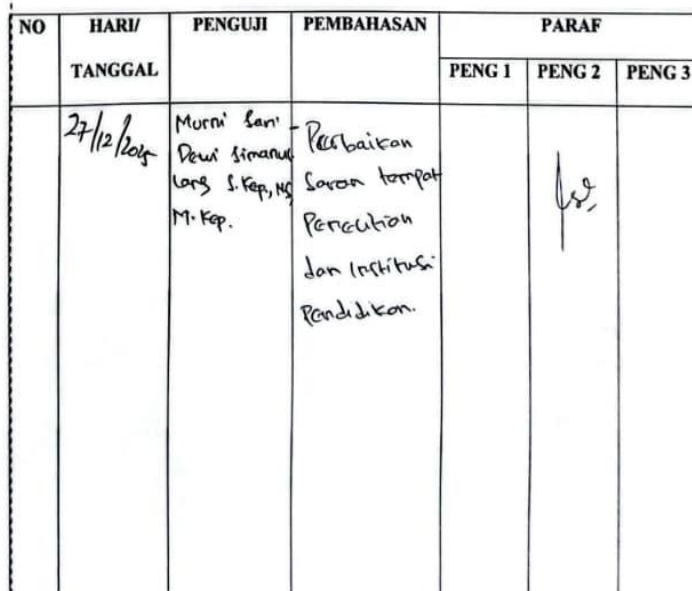 NO HARI/ PENGUJI PEMBAHASAN PARAF
TANGGAL PENG 1 PENG 2 PENG 3
27/12/2025
Murni Sari
Dewi Simanul
lang S.Kep, Ns
M.Kep.
- Perbaikan
Saran tempat
Penelitian
dan Institusi
Pendidikan.